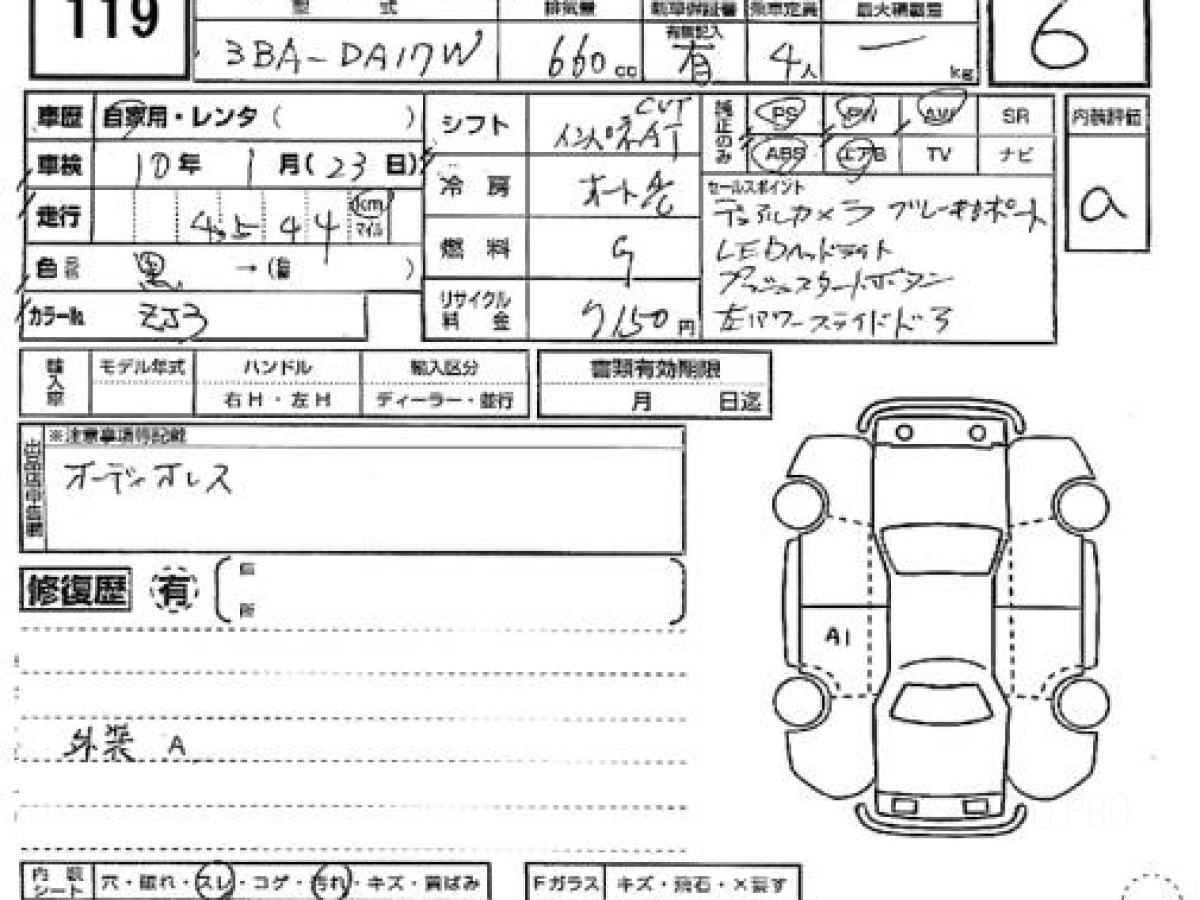 119
型 式 排気量 乗車定員 最大積載量
有無記入
3BA-DA17W 660cc 有 4人 ー kg
6
車歴 自家用・レンタ ( )
車検 10年 1月(23日)
走行 km マイル
色 黒 →( )
カラー№ ZJ3
シフト CVT
インパネAT
冷房 オートA/C
燃料 G
リサイクル料金 7150円
純正のみ PS PW AW SR
ABS エアB TV ナビ
セールスポイント
デュアルカメラ ブレーキサポート
LEDヘッドライト
プッシュスタートボタン
左パワースライドドア
内装評価
a
輸入車 モデル年式 ハンドル 輸入区分
右H・左H ディーラー・並行
書類有効期限
月 日迄
※注意事項特記載
オーディオレス
修復歴 有
箇
所
A1
外装 A
内装シート 穴・破れ・スレ・コゲ・汚れ・キズ・黄ばみ
Fガラス キズ・飛石・×要す
.PRO